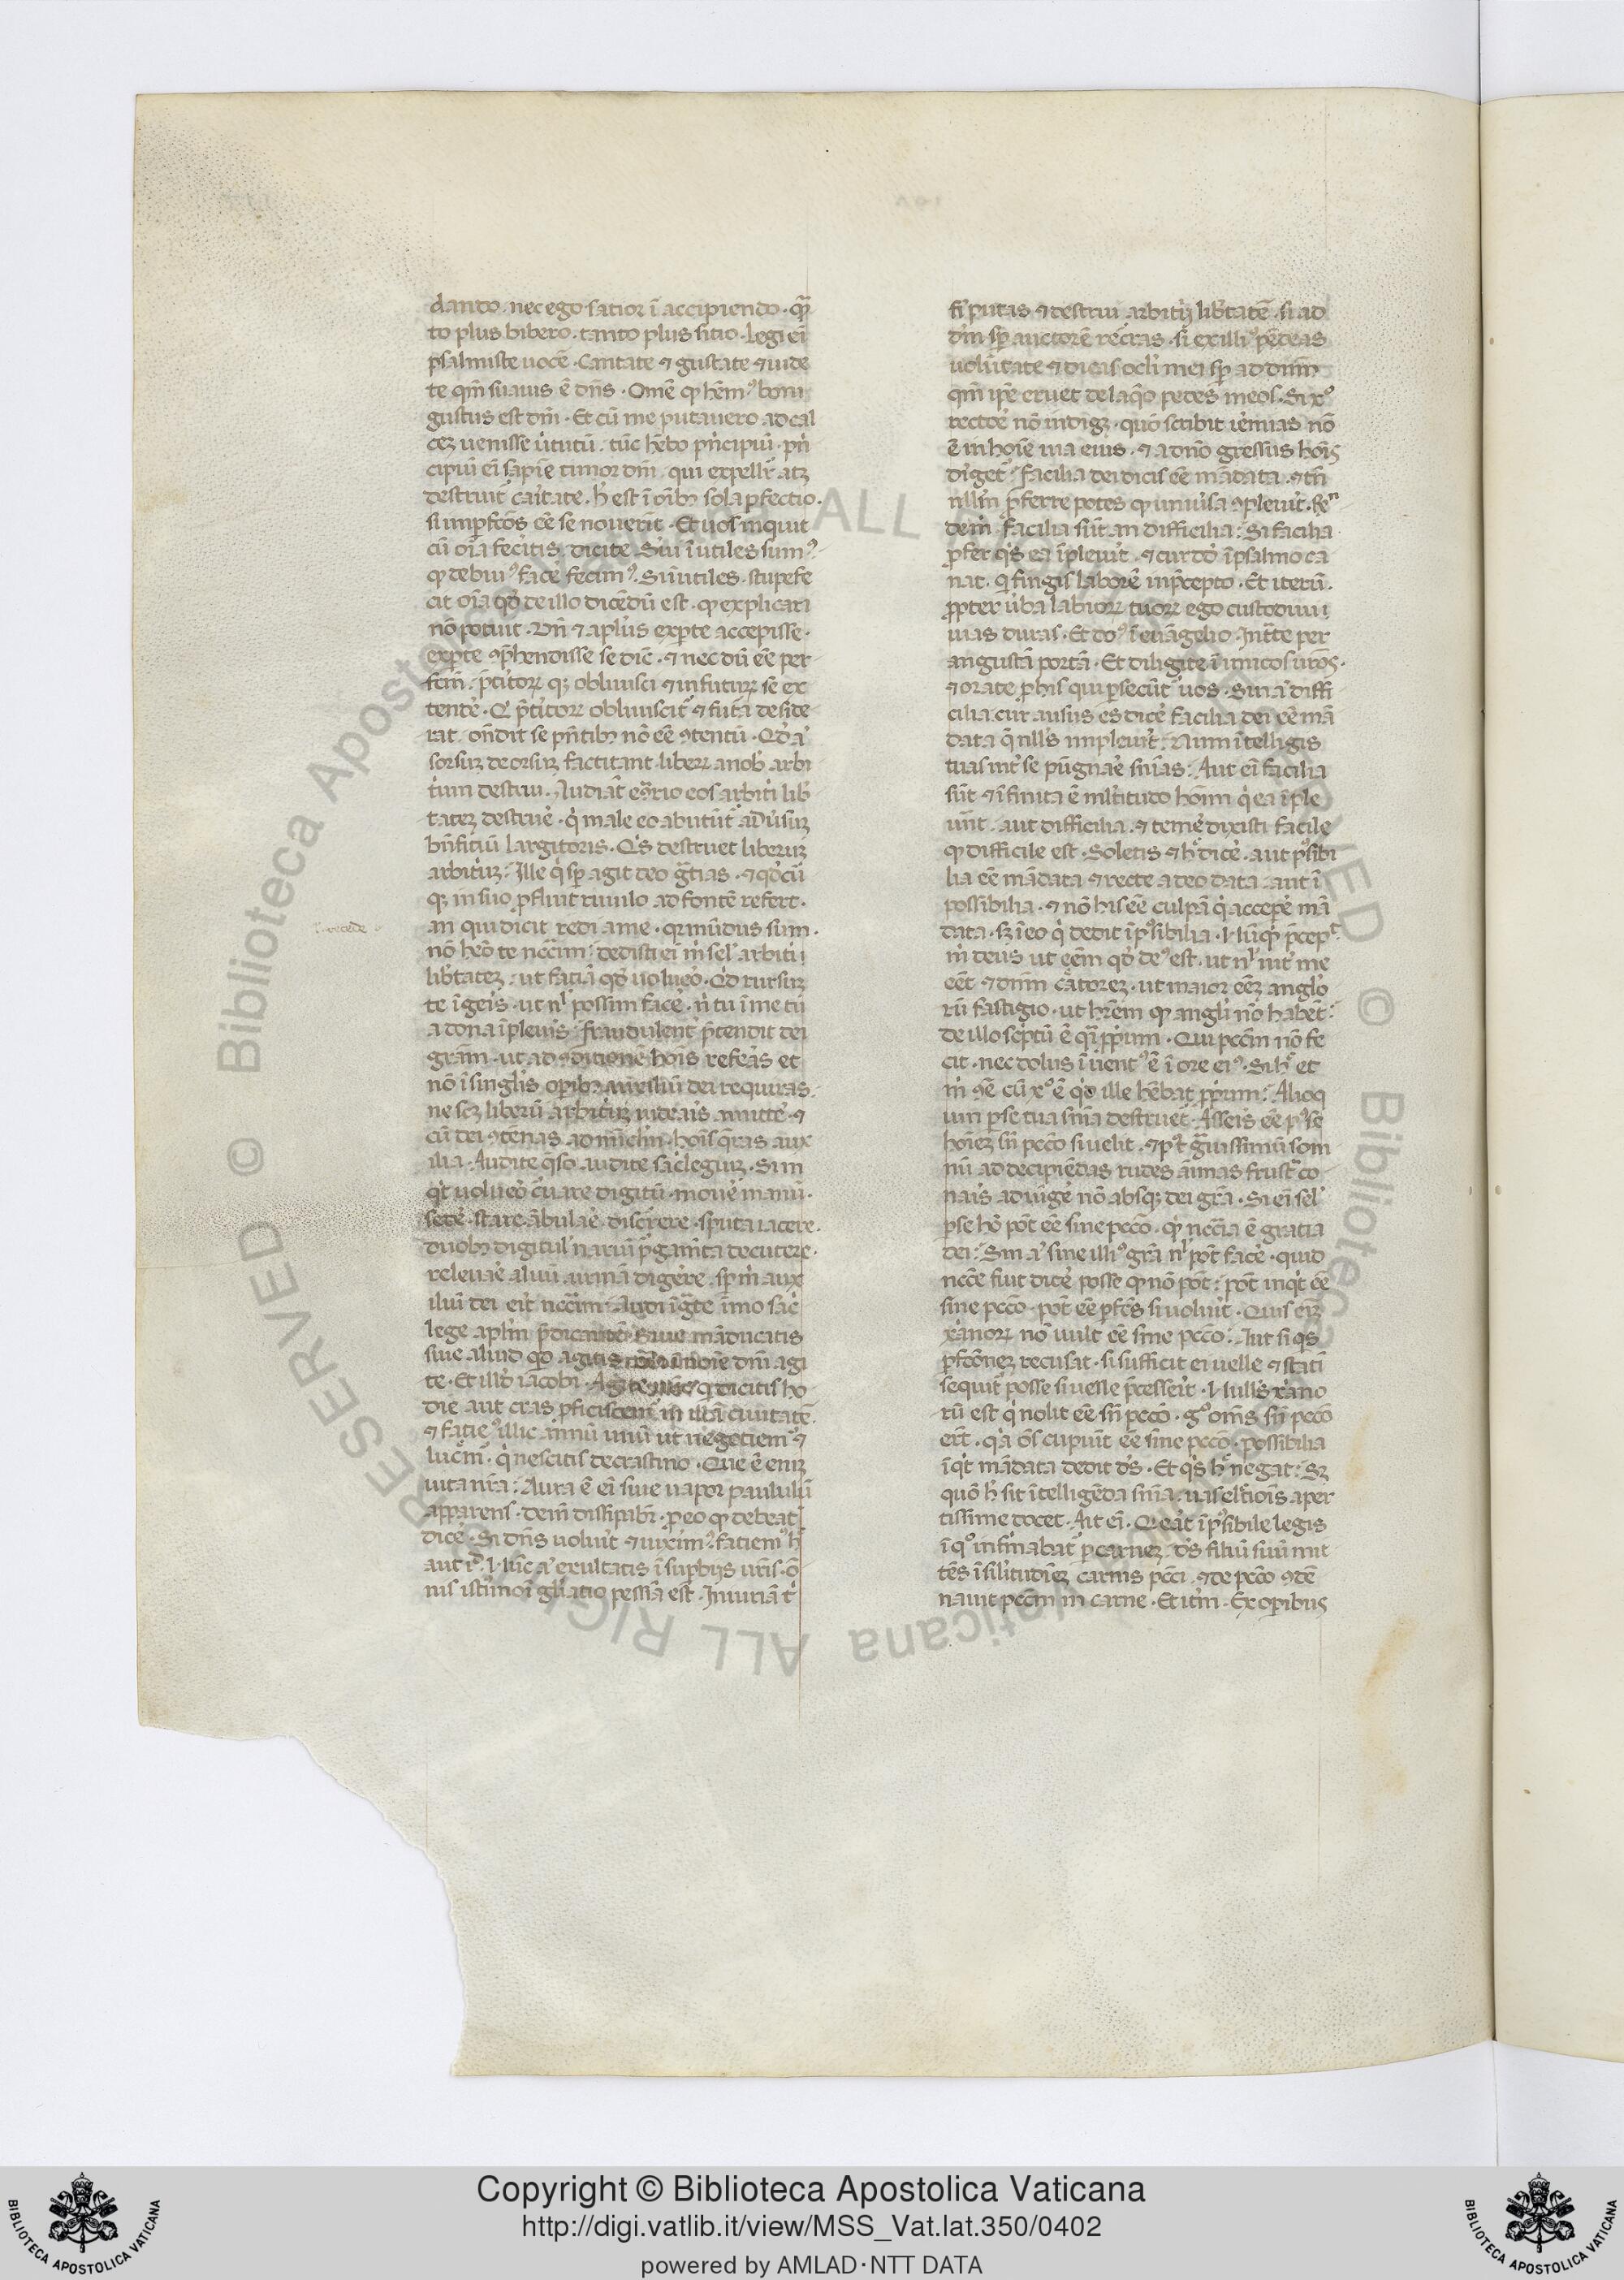 dando. nec ego satior ī accipiendo. qᷓ
to plus bibero. tanto plus sitio. Legi eī
psalmiste uocē. Gustate ⁊ uide
te qm̄ suauis ē dn̄s. Om̄e qͥ hēm⁹ boni
gustus est dn̄i. Et cū me putauero ad cal
cez uenisse ũtutū. tūc hēbo pͥncipiū. pͥn
cipiū eī sapīe timor dn̄i. qui expellit̃ atqꝫ
destruit̃ caͥtate. h̓ est ī oīb; sola ꝑfectio.
si imꝑfcōs ēē se nouerīt. Et uos inquit
cū oīa fecͥtis. dicite. Sͥui īutiles sum⁹.
qͥ debuī⁹ face̓ fecim⁹. Si īutiles.
cit oīa de illo dicēdū est. qͥ explicari
nō potuit. Vn̄ ⁊ apl̓us ex ꝑte accepisse.
ex ꝑte ꝯp̄hendisse se dic̄. ⁊ nec dū ēē per
fcm̄. p̄tͥitoꝝ qꝫ obliuisci ⁊ in futurꝝ sē ex
tente̓. Qͥ p̄tͥitoꝝ obliuiscit̃ ⁊ futͣa deside
rat. on̄dit se pn̄tib; nō ēē ꝯtentū. Qd̓ aͧ
sorsuꝫ deorsuꝫ factitant libeꝝ a nob̓ arbi
tͥum destrui. Audiāt eͣ9rio eos arbitͥi lib̓
tateꝫ destrue̓. qͥ male eo abutūt̃ ad̓ũsuꝫ
bn̄ficiū largitoris. Qͥs destruet liberuꝫ
arbitͥuꝫ: Ille qͥ sꝑ agit deo gͣtias. ⁊ qd̓cū
qꝫ in suo ꝓfluit riuulo ad fontē refert.
an qui dicit recedi a me. qꝛ mūdus sum.
nō heō te nc̄c̄im. dedisti eī m̓ sel̓ arbitͥi
lib̓tateꝫ. ut faciā qd̓ uolue̓o. Qd̓ rursuꝫ
te īgeis. ut nͥl possim face̓. nͥ tu ī me tu
a dona īpleuͥis: fraudulent̃ p̄tendit dei
grām. ut ad ꝯditionē hoīs refeͣs et
nō ī singlis oꝑib; auxiliū dei requiras.
ne scꝫ liberū arbitͥuꝫ uideaͥs amitte̓. ⁊
cū dei ꝯtēnas ad mīclm̄. hoīs qͥras aux
ilia. Audite qͥso audite sacͥlegiuꝫ. Si in
qͥt uolue̓o cuͣre digitū. moue̓ manū.
sede̓. stare. ābulae̓. discͥrere. sputa iacere.
duob; digitul̓ nariū p̓gam̄ta decutere.
releuaē aluū. urinā dige̓re. sꝑ m̓ aux
iliū dei erit nc̄c̄im. Audi īgͣte īmo sacͥ
lege apl̓m p̄dicantē. Siue māducatis
siue aliud qd̓ agitis oīa ī noīe dn̄i agi
te. Et illd̓ iacobi. qͥ dicitis ho
die aut cras ꝓficiscem̃ in illā ciuitatē.
⁊ facie⁹ illic annū unū ut negotiem̃ ⁊
lucͥm̃. qͥ nescitis de crastino. Que ē eniꝫ
uita nr̄a: Aura ē eī siue uapor paululū
apparens. dein̄ dissipab̃. ꝓ eo qͥ debeat̃
dice̓. Si dn̄s uoluīt ⁊ uixim⁹. faciem⁹ h̓
aut iͩ. Nūc aͧ exultatis ī supb̓ijs ur̄is. ō
nis istimōi gl̓iatio pessīa est. Iniuriā t̓
fi putas ⁊ destrui arbitͥij lib̓tatē. si ad
dm̄ sꝑ auctorē recͥras. si ex illi⁹ pēdeas
uolūtate ⁊ dicas ocl̓i mei sꝑ ad dn̄m
qm̄ ip̄e euet de laqͦo pedes meos.
rectoe̓ nō indigꝫ. quō scribit ie̓mias nō
ē in hoīe uia eius. ⁊ a dnō gressus hoīs
diͥget̃. facilia dei dicis ēē mādata. ⁊ tn̄
nllm̄ ꝓferre potes qͥ uniuͣsa ꝯpleuīt. Rn̄
de m̓. facilia sūt an difficilia: Si facilia
ꝓfer qͥs ea īpleuīt. ⁊ cur dd̓ ī psalmo ca
nat. qͥ fingis laborē in p̄cepto. Et iterū.
ꝓpter ũba labioꝝ tuoꝝ ego custodiui
uias duras. Et do⁹ ī euāgelio. Intͣte per
angustā portā. Et diligite īimicos ur̄os.
⁊ orate ꝓ his qui ꝑsecūt̃ uos. Sin aͧ diffi
cilia cur ausus es dice̓ facilia dei ēē mā
data qͥ nll̓s impleuīt. Num ītelligis
tuas int̓ se pūgnae̓ sn̄ias: Aut eī facilia
sūt ⁊ īfinita ē ml̓titudo hoīm qͥ ea īple
ūnt. aut difficilia. ⁊ temē dixisti facile
qͥ difficile est. Soletis ⁊ h̓ dice̓. aut pͦssibi
lia ēē mādata ⁊ recte a deo data. aut ī
possibilia. ⁊ nō his ēē culpā qͥ accepe̓ mā
data. sꝫ ī eo qͥ dedit īpͦssibilia.
m̓ deus ut eēm qd̓ de⁹ est. ut nͥl int̓ me
eēt ⁊ dn̄m cͣtoreꝫ. ut maior eēꝫ anglo
rū fastigio. ut hr̄em qͥ angl̓i nō habēt:
de illo sc̄ptū ē qͣi ꝓpͥum. Qui pccm̄ nō fe
cit. nec dolus īuent⁹ ē ī ore ei⁹. Si h̓ et
m̓ ꝯē cū xͦ ē qͦ ille hēbat ꝓpͥum: Alioq
uin ꝑ se tua sn̄ia destruet̃. Asseis ēē pͦsse
hoīeꝫ sn̄ pccō si uelit. ⁊ pͦt gͣuissimū som
nū ad decipiēdas rudes aīmas frustͣ co
naͥs adiūge̓ nō absqꝫ dei grā. Si eī sel̓
ꝑ se hō pōt ēē sine pccō. qͥ nccīa ē gratia
dei: Sin aͧ sine illi⁹ grā nͥl pōt face̓. quid
nc̄c̄e fuit dice̓ posse qͥ nō pōt: pōt inqͥt ēē
sine pccō. pōt ēē ꝑfc̄s si uoluīt. Quis eīꝫ
xͥanoꝝ nō uult ēē sine pccō: Aut si qͥs
ꝑfcōneꝫ recusat. si sufficit ei uelle ⁊ stati
sequit̃ posse si uelle p̄cesserit. Nullus xͥano
rū est qͥ nolit ēē sn̄ pccō. gͦ om̄s sn̄ pccō
eīt. qͥa ōs cupiūt ēē sine pccō. possibilia
īqͥt mādata dedit ds̄. Et qͥs h̓ negat: Sꝫ
quō h̓ sit ītelligēda sn̄ia. uas el̓tiois aper
tissime docet. Ait eī. Qͥ eāt īpͦssibile legis
ī qͦ infͥmabat̃ ꝑ carneꝫ. ds̄ filiū suū mit
tēs ī sil̓itudīeꝫ carnis pcci. ⁊ de pccō ꝯdē
nauit pccm̄ in carne. Et itm̄. Ex oꝑibus
Copyright © Biblioteca Apostolica Vaticana
http://digi.vatlib.it/view/MSS_Vat.lat.350/0402
powered by AMLAD·NTT DATA
BIBLIOTECA APOSTOLICA VATICANA
BIBLIOTECA APOSTOLICA VATICANA
© Biblioteca Apostolica Vaticana ALL RIGHTS RESERVED